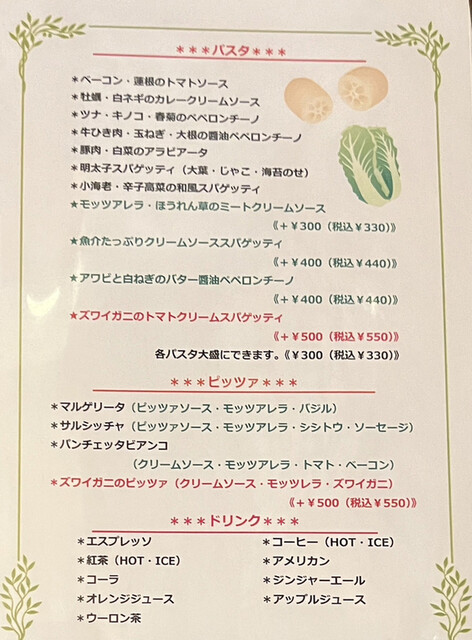 ＊＊＊パスタ＊＊＊
＊ベーコン・蓮根のトマトソース
＊牡蠣・白ネギのカレークリームソース
＊ツナ・キノコ・春菊のペペロンチーノ
＊牛ひき肉・玉ねぎ・大根の醤油ペペロンチーノ
＊豚肉・白菜のアラビアータ
＊明太子スパゲッティ（大葉・じゃこ・海苔のせ）
＊小海老・辛子高菜の和風スパゲッティ
★モッツアレラ・ほうれん草のミートクリームソース
《＋￥300（税込￥330）》
★魚介たっぷりクリームソーススパゲッティ
《＋￥400（税込￥440）》
★アワビと白ねぎのバター醤油ペペロンチーノ
《＋￥400（税込￥440）》
★ズワイガニのトマトクリームスパゲッティ
《＋￥500（税込￥550）》
各パスタ大盛にできます。《￥300（税込￥330）》
＊＊＊ピッツァ＊＊＊
＊マルゲリータ（ピッツァソース・モッツアレラ・バジル）
＊サルシッチャ（ピッツァソース・モッツアレラ・シシトウ・ソーセージ）
＊パンチェッタビアンコ
（クリームソース・モッツアレラ・トマト・ベーコン）
＊ズワイガニのピッツァ（クリームソース・モッツレラ・ズワイガニ）
《＋￥500（税込￥550）》
＊＊＊ドリンク＊＊＊
＊エスプレッソ ＊コーヒー（HOT・ICE）
＊紅茶（HOT・ICE） ＊アメリカン
＊コーラ ＊ジンジャーエール
＊オレンジジュース ＊アップルジュース
＊ウーロン茶